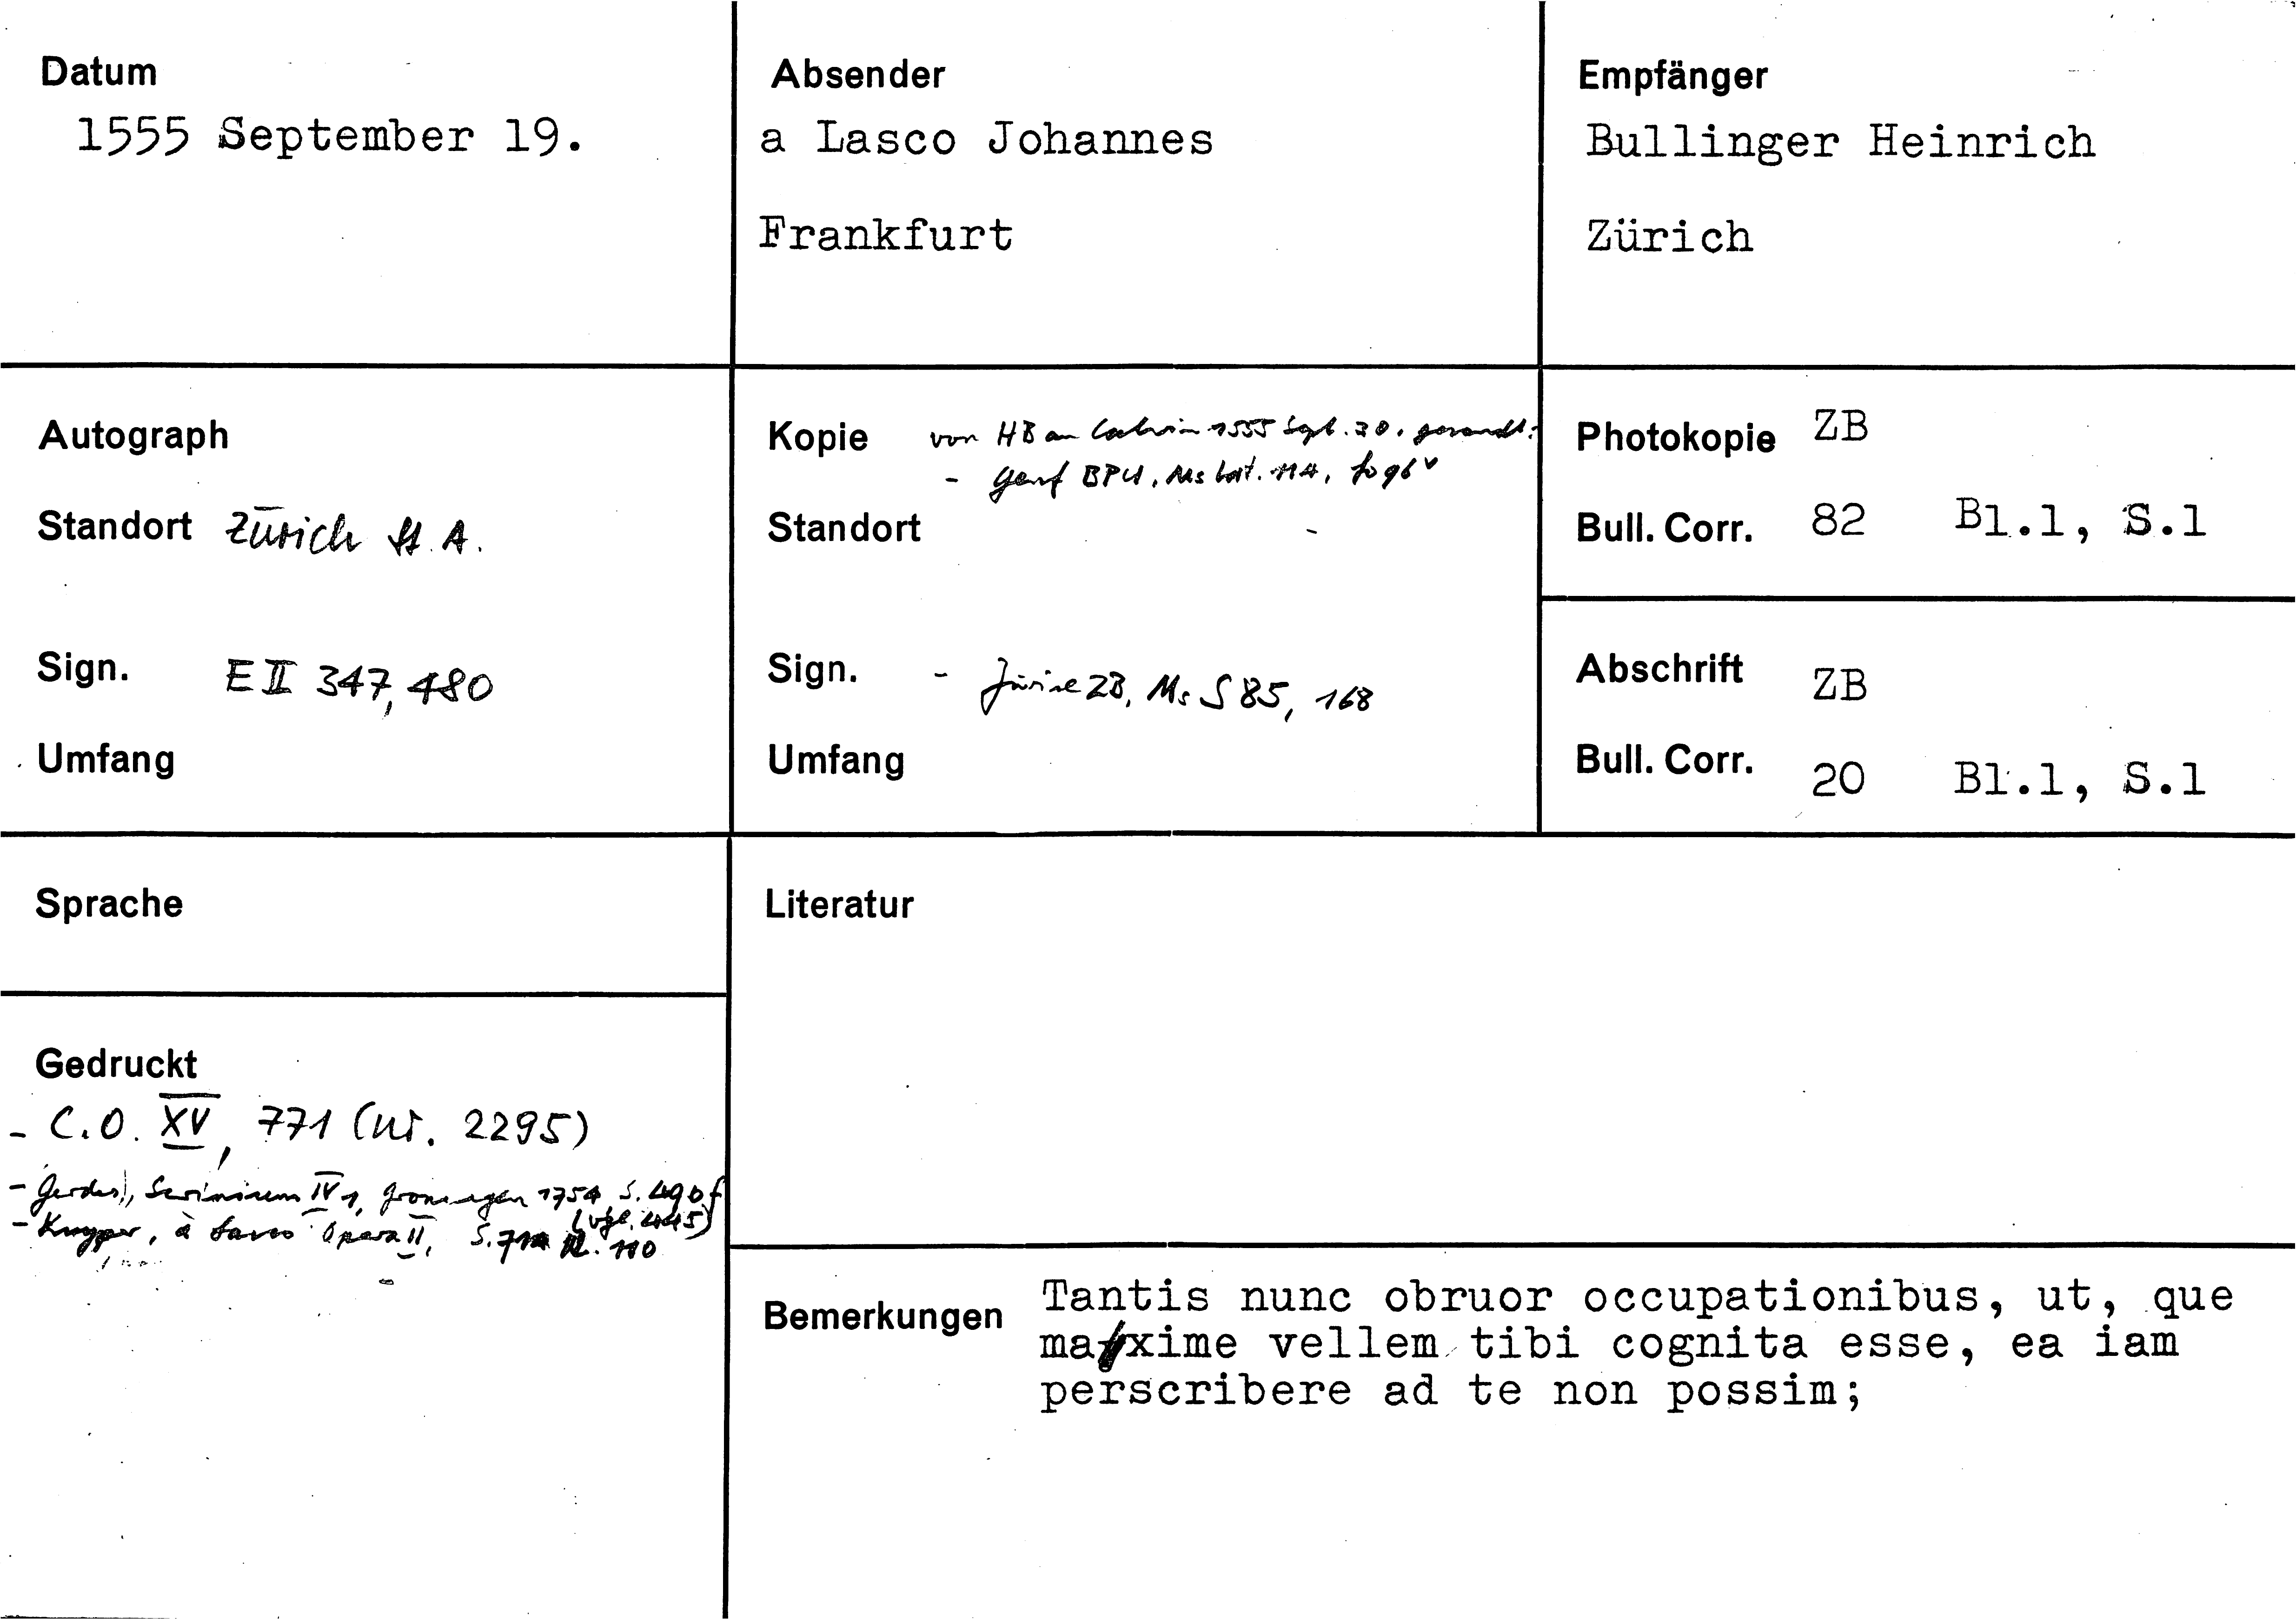 Datum
1555 September 19.
Absender
a Lasco Johannes
Frankfurt
Empfänger
Bullinger Heinrich
Zürich
Autograph
Standort Zürich St. A.
Sign. E II 347, 480
Umfang
Kopie von HB an Calvin 1555 Sept. 30. gesandt:
- Genf BPU, Ms lat. 114, fo 96v
Standort
Sign. - Zürich ZB, Ms S 85, 168
Umfang
Photokopie ZB
Bull. Corr. 82 Bl.1, S.1
Abschrift ZB
Bull. Corr. 20 Bl.1, S.1
Sprache
Literatur
Gedruckt
- C.O. XV, 771 (Nr. 2295)
- Gerdes, Scrinium IV 1, Groningen 1754 S. 490f
(vgl. 445)
- Kuyper, à Lasco Opera II, S. 714 N. 110
Bemerkungen
Tantis nunc obruor occupationibus, ut, que
maxime vellem tibi cognita esse, ea iam
perscribere ad te non possim;